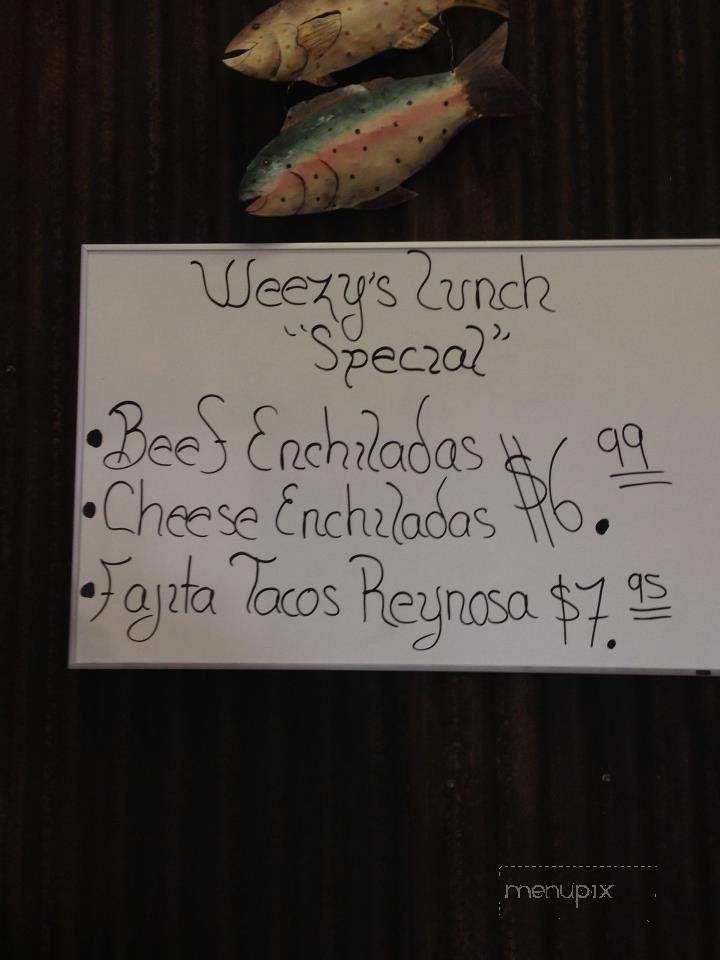 Weezy's Lunch
"Special"
• Beef Enchiladas $6.99
• Cheese Enchiladas
• Fajita Tacos Reynosa $7.95
menupix